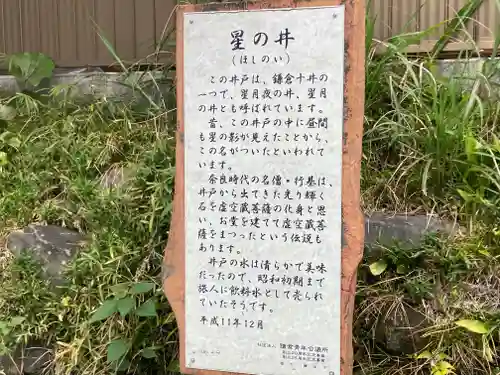 星の井
(ほしのい)
この井戸は、鎌倉十井
の一つで、星月夜の井、星月
の井とも呼ばれています。
昔、この井戸の中に昼間
も星の影が見えたことから、
この名がついたといわれて
います。
奈良時代の名僧・行基は、
井戸から出てきた光り輝く
石を虚空蔵菩薩の化身と思
い、お堂を建てて虚空蔵菩
薩をまつったという伝説も
あります。
井戸の水は清らかで美味
だったので、昭和初期まで
旅人に飲料水として売られ
ていたそうです。
平成11年12月